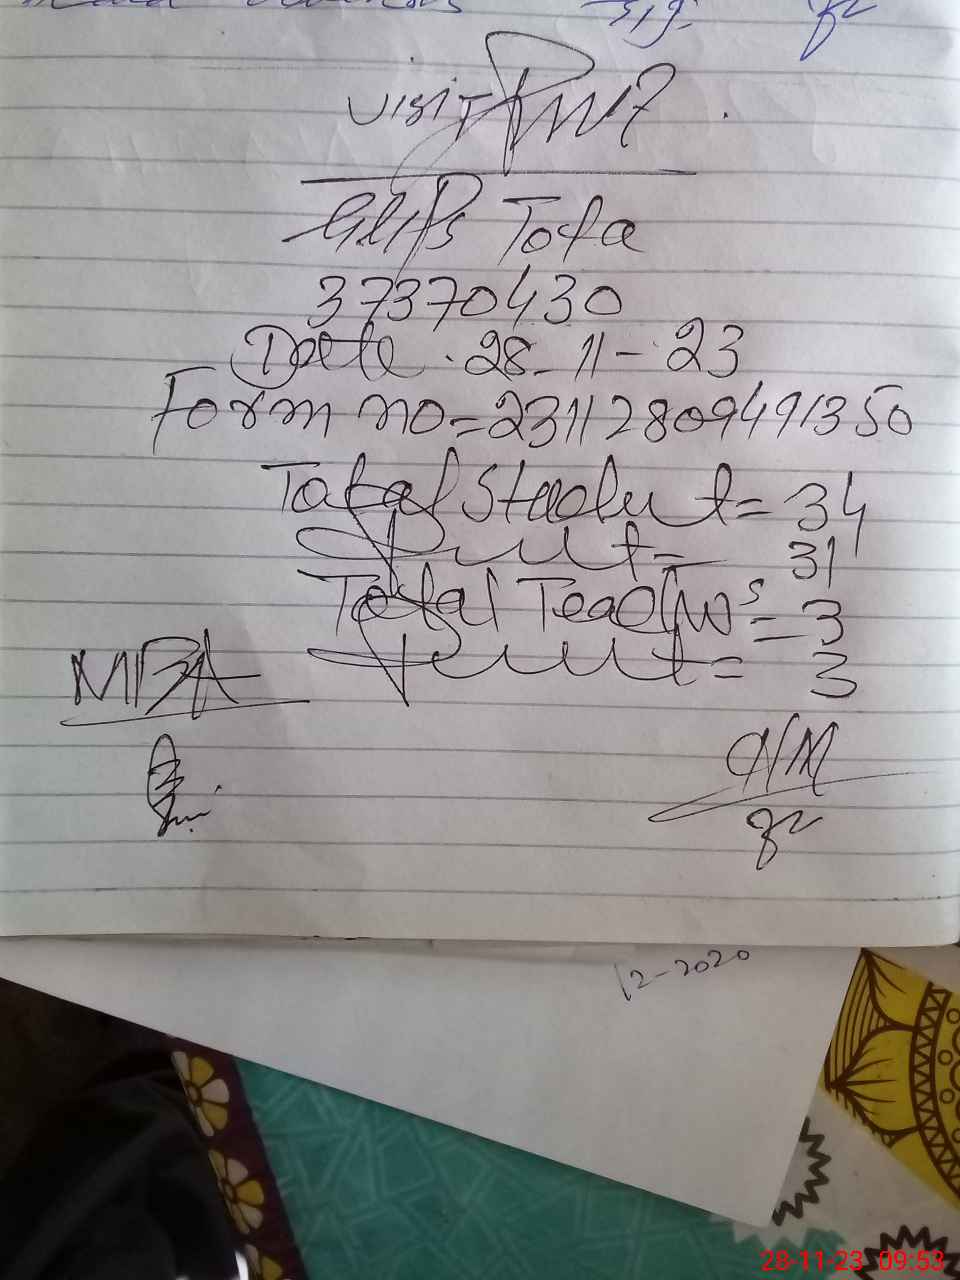 Visit
GGPS Tota
37370430
Date . 28-11-23
Form no=23112809491350
Total Student = 34
Present = 31
Total Teachers = 3
Present = 3
MEA
HM
12-2020
28-11-23 09:53